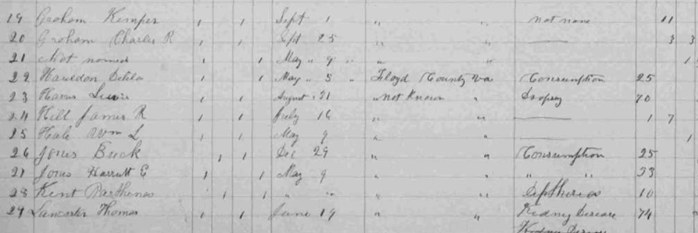 19 Graham Kemper 1 1 Sept 1 " " not none 11
20 Graham Charles R 1 1 Sept 25 " " — 3 3
21 Not named 1 1 May " 9 " " 1
22 Cecilia 1 1 May " 5 Floyd County Va Consumption 25
23 1 1 August " 21 " not Known " Dropsy 70
24 Hill James R 1 1 July 16 " " — 1 7
25 Hale Wm L 1 1 May 9 " " 1
26 Jones Buck 1 1 Dec 29 " " Consumption 25
27 Jones Harriett E 1 1 May 9 " " " " 23
28 Kent Parthenas 1 1 " " " " Diptheria 10
29 Lancaster Thomas 1 1 June 19 " " Kidney Disease 74
Kidney Disease